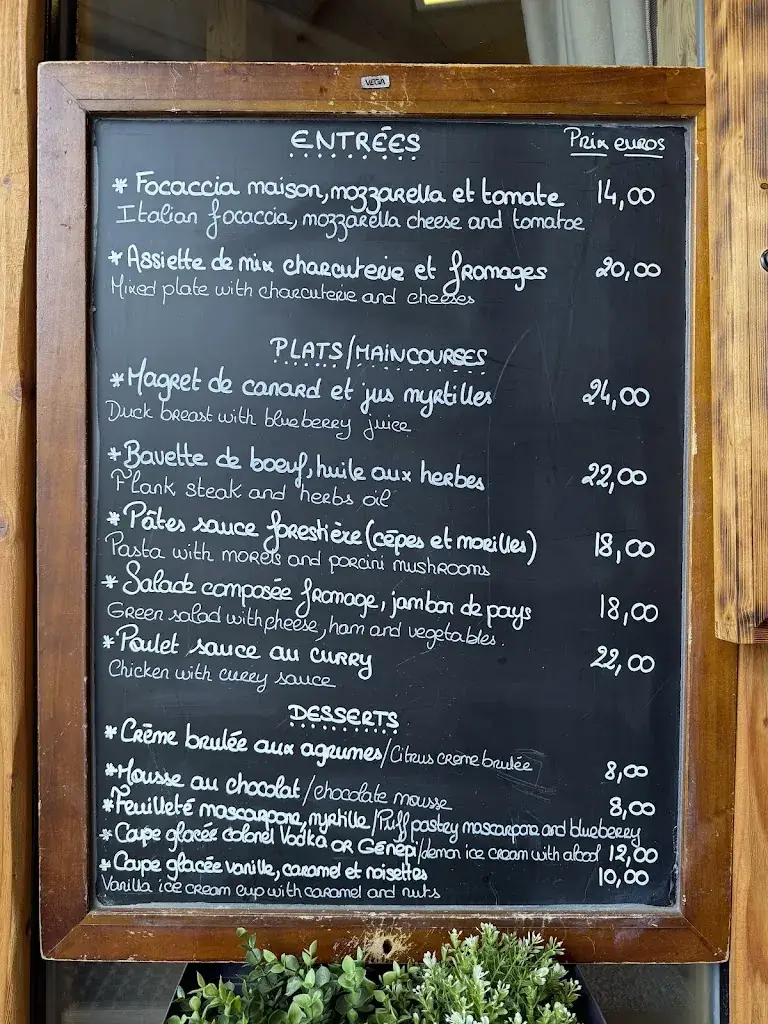 VEGA
ENTRÉES Prix euros
* Focaccia maison, mozzarella et tomate 14,00
Italian focaccia, mozzarella cheese and tomatoe
* Assiette de mix charcuterie et fromages 20,00
Mixed plate with charcuterie and cheeses
PLATS/MAINCOURSES
* Magret de canard et jus myrtilles 24,00
Duck breast with blueberry juice
* Bavette de boeuf, huile aux herbes 22,00
Flank steak and herbs oil
* Pâtes sauce forestière (cépes et morilles) 18,00
Pasta with morels and porcini mushrooms
* Salade composée fromage, jambon de pays 18,00
Green salad with pheese, ham and vegetables.
* Poulet sauce au curry 22,00
Chicken with curry sauce
DESSERTS
* Crème brulée aux agrumes/Citrus crème brulée 8,00
* Mousse au chocolat/chocolate mousse 8,00
* Feuilleté mascarpone, myrtille/Puff pastry mascarpone and blueberry
* Coupe glacée colonel Vodka OR Génépi/lemon ice cream with alcool 12,00
* Coupe glacée vanille, caramel et noisettes 10,00
Vanilla ice cream cup with caramel and nuts